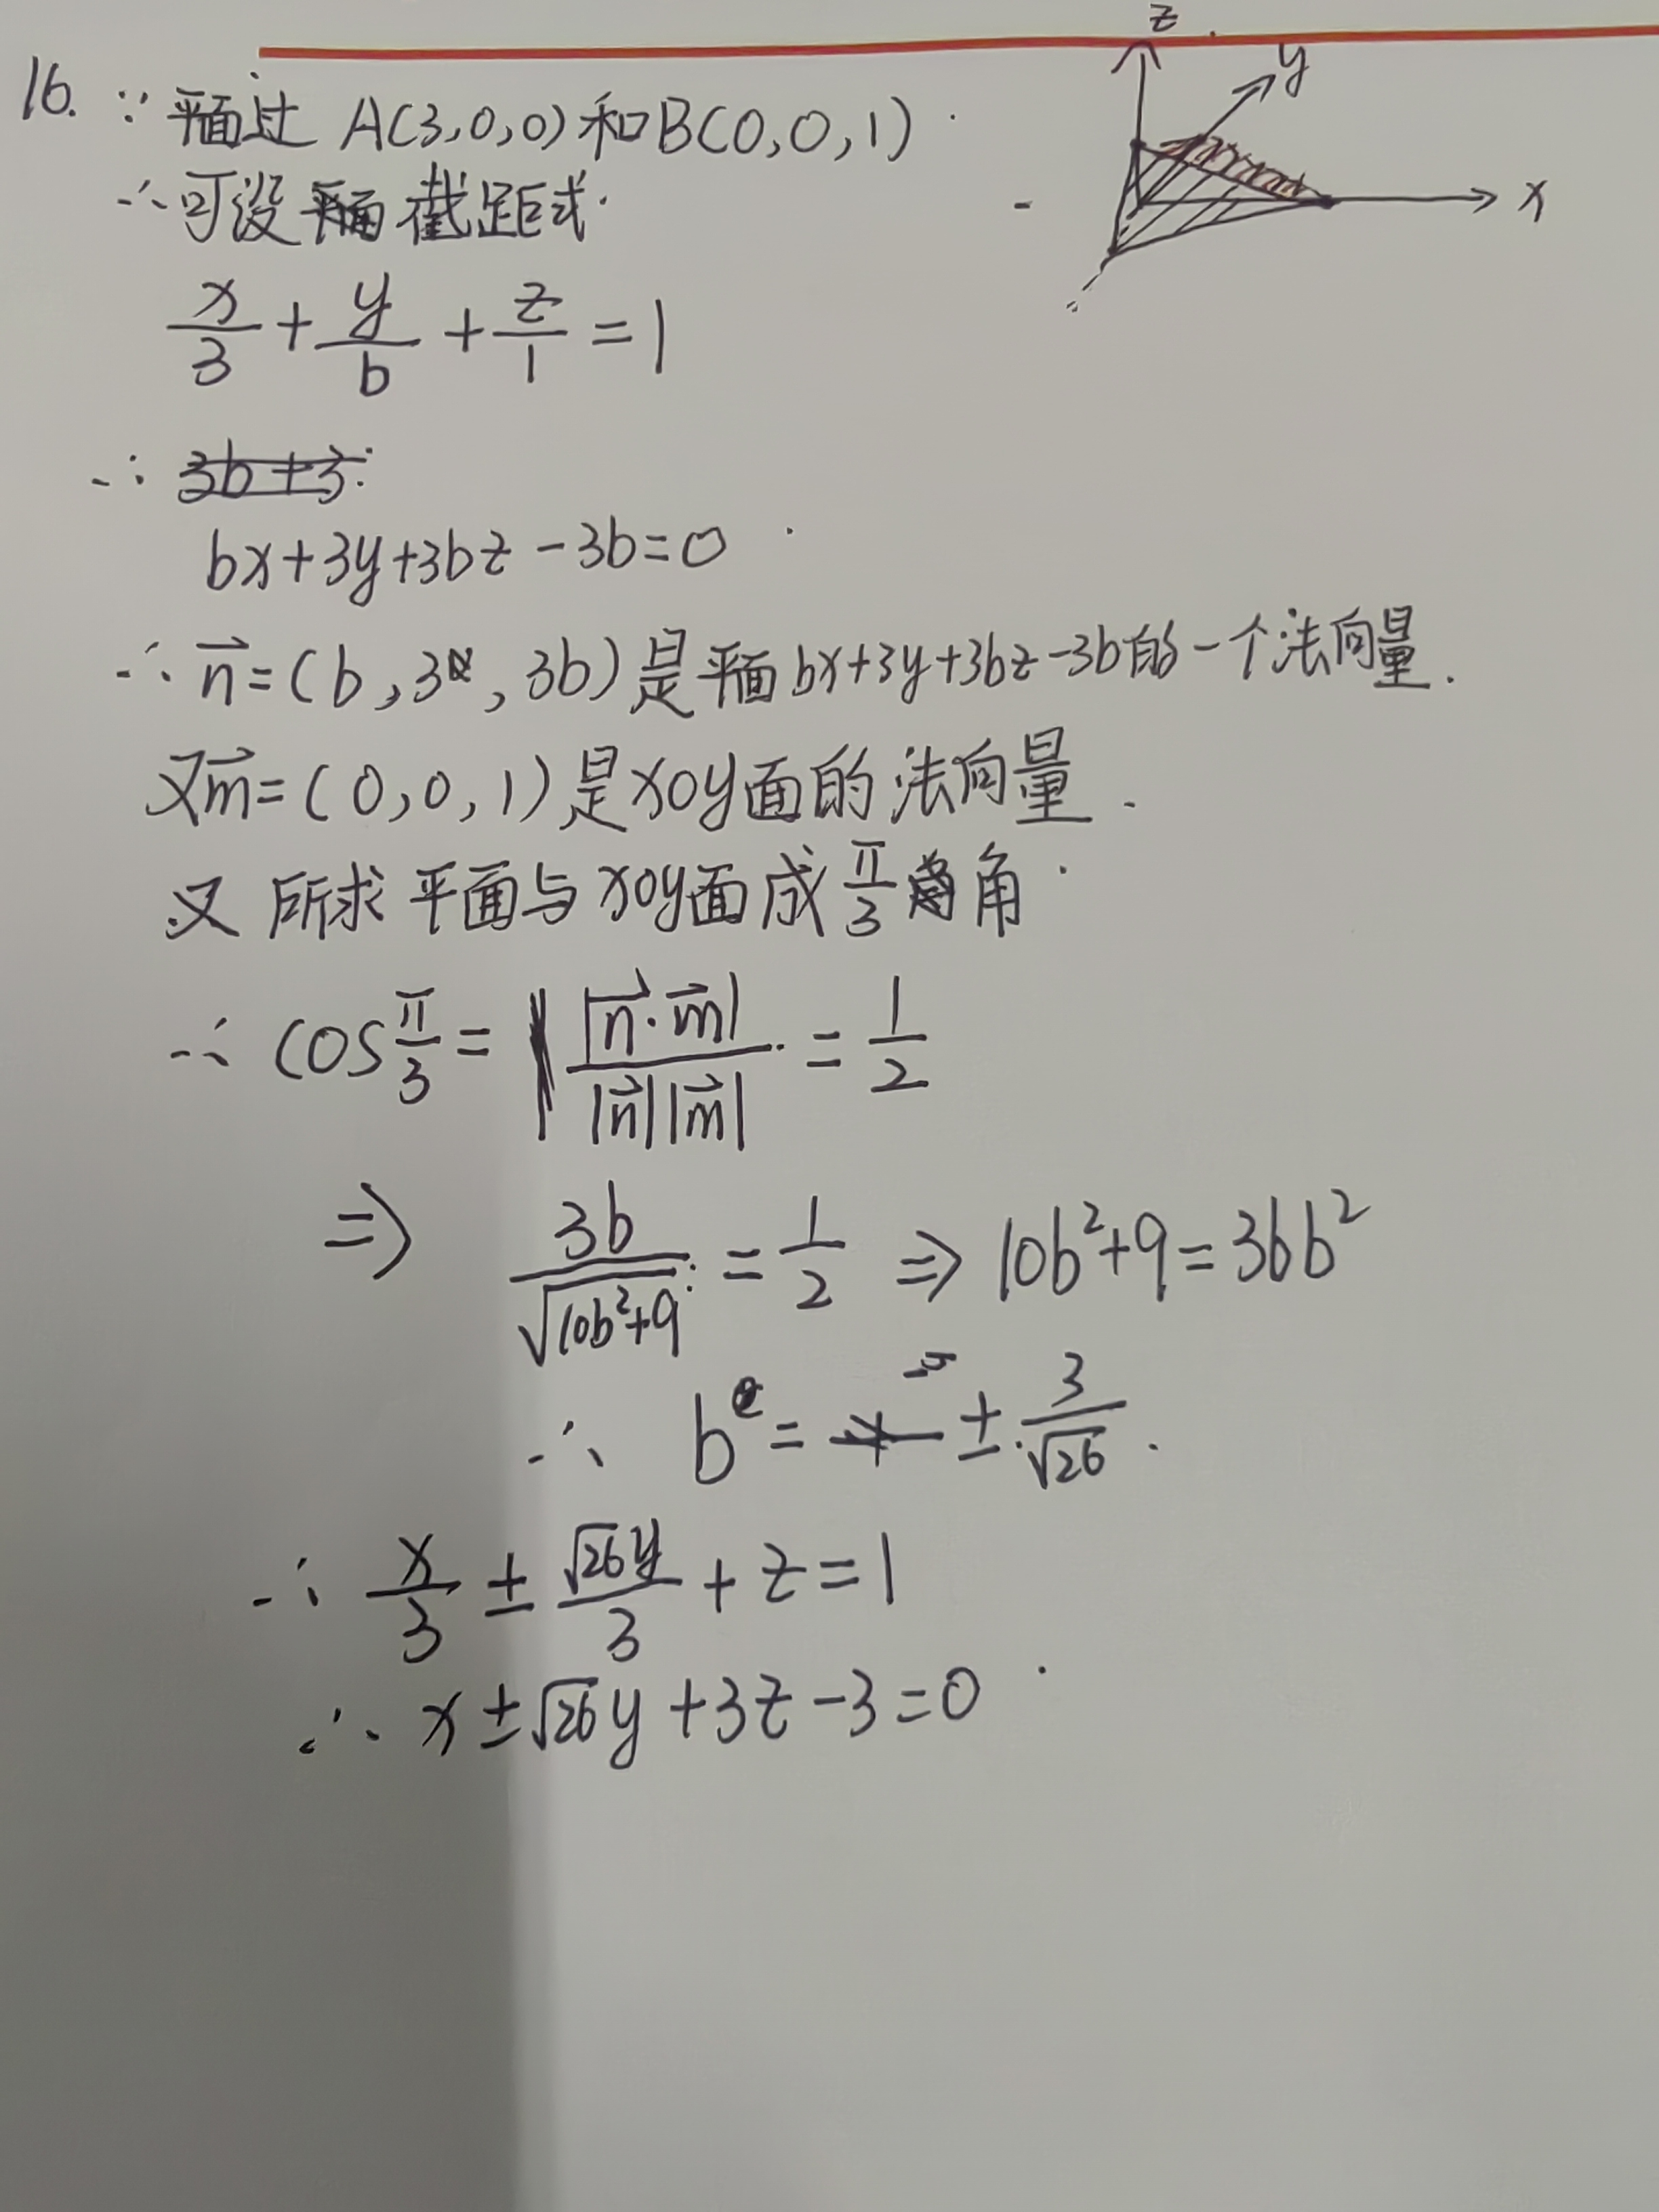 z
y
x
16. ∵平面过 A(3,0,0)和B(0,0,1)
∴可设平面截距式
x/3 + y/b + z/1 = 1
∴ 3b+3
bx+3y+3bz-3b=0
∴ n⃗=(b,3,3b)是平面bx+3y+3bz-3b的一个法向量.
又m⃗=(0,0,1)是xoy面的法向量.
又所求平面与xoy面成π/3角
∴ cosπ/3 = |n⃗·m⃗|/|n⃗||m⃗| = 1/2
⇒ 3b/√(10b²+9) = 1/2 ⇒ 10b²+9=36b²
∴ b = ±3/√26.
∴ x/3 ± √26y/3 + z = 1
∴ x±√26y+3z-3=0